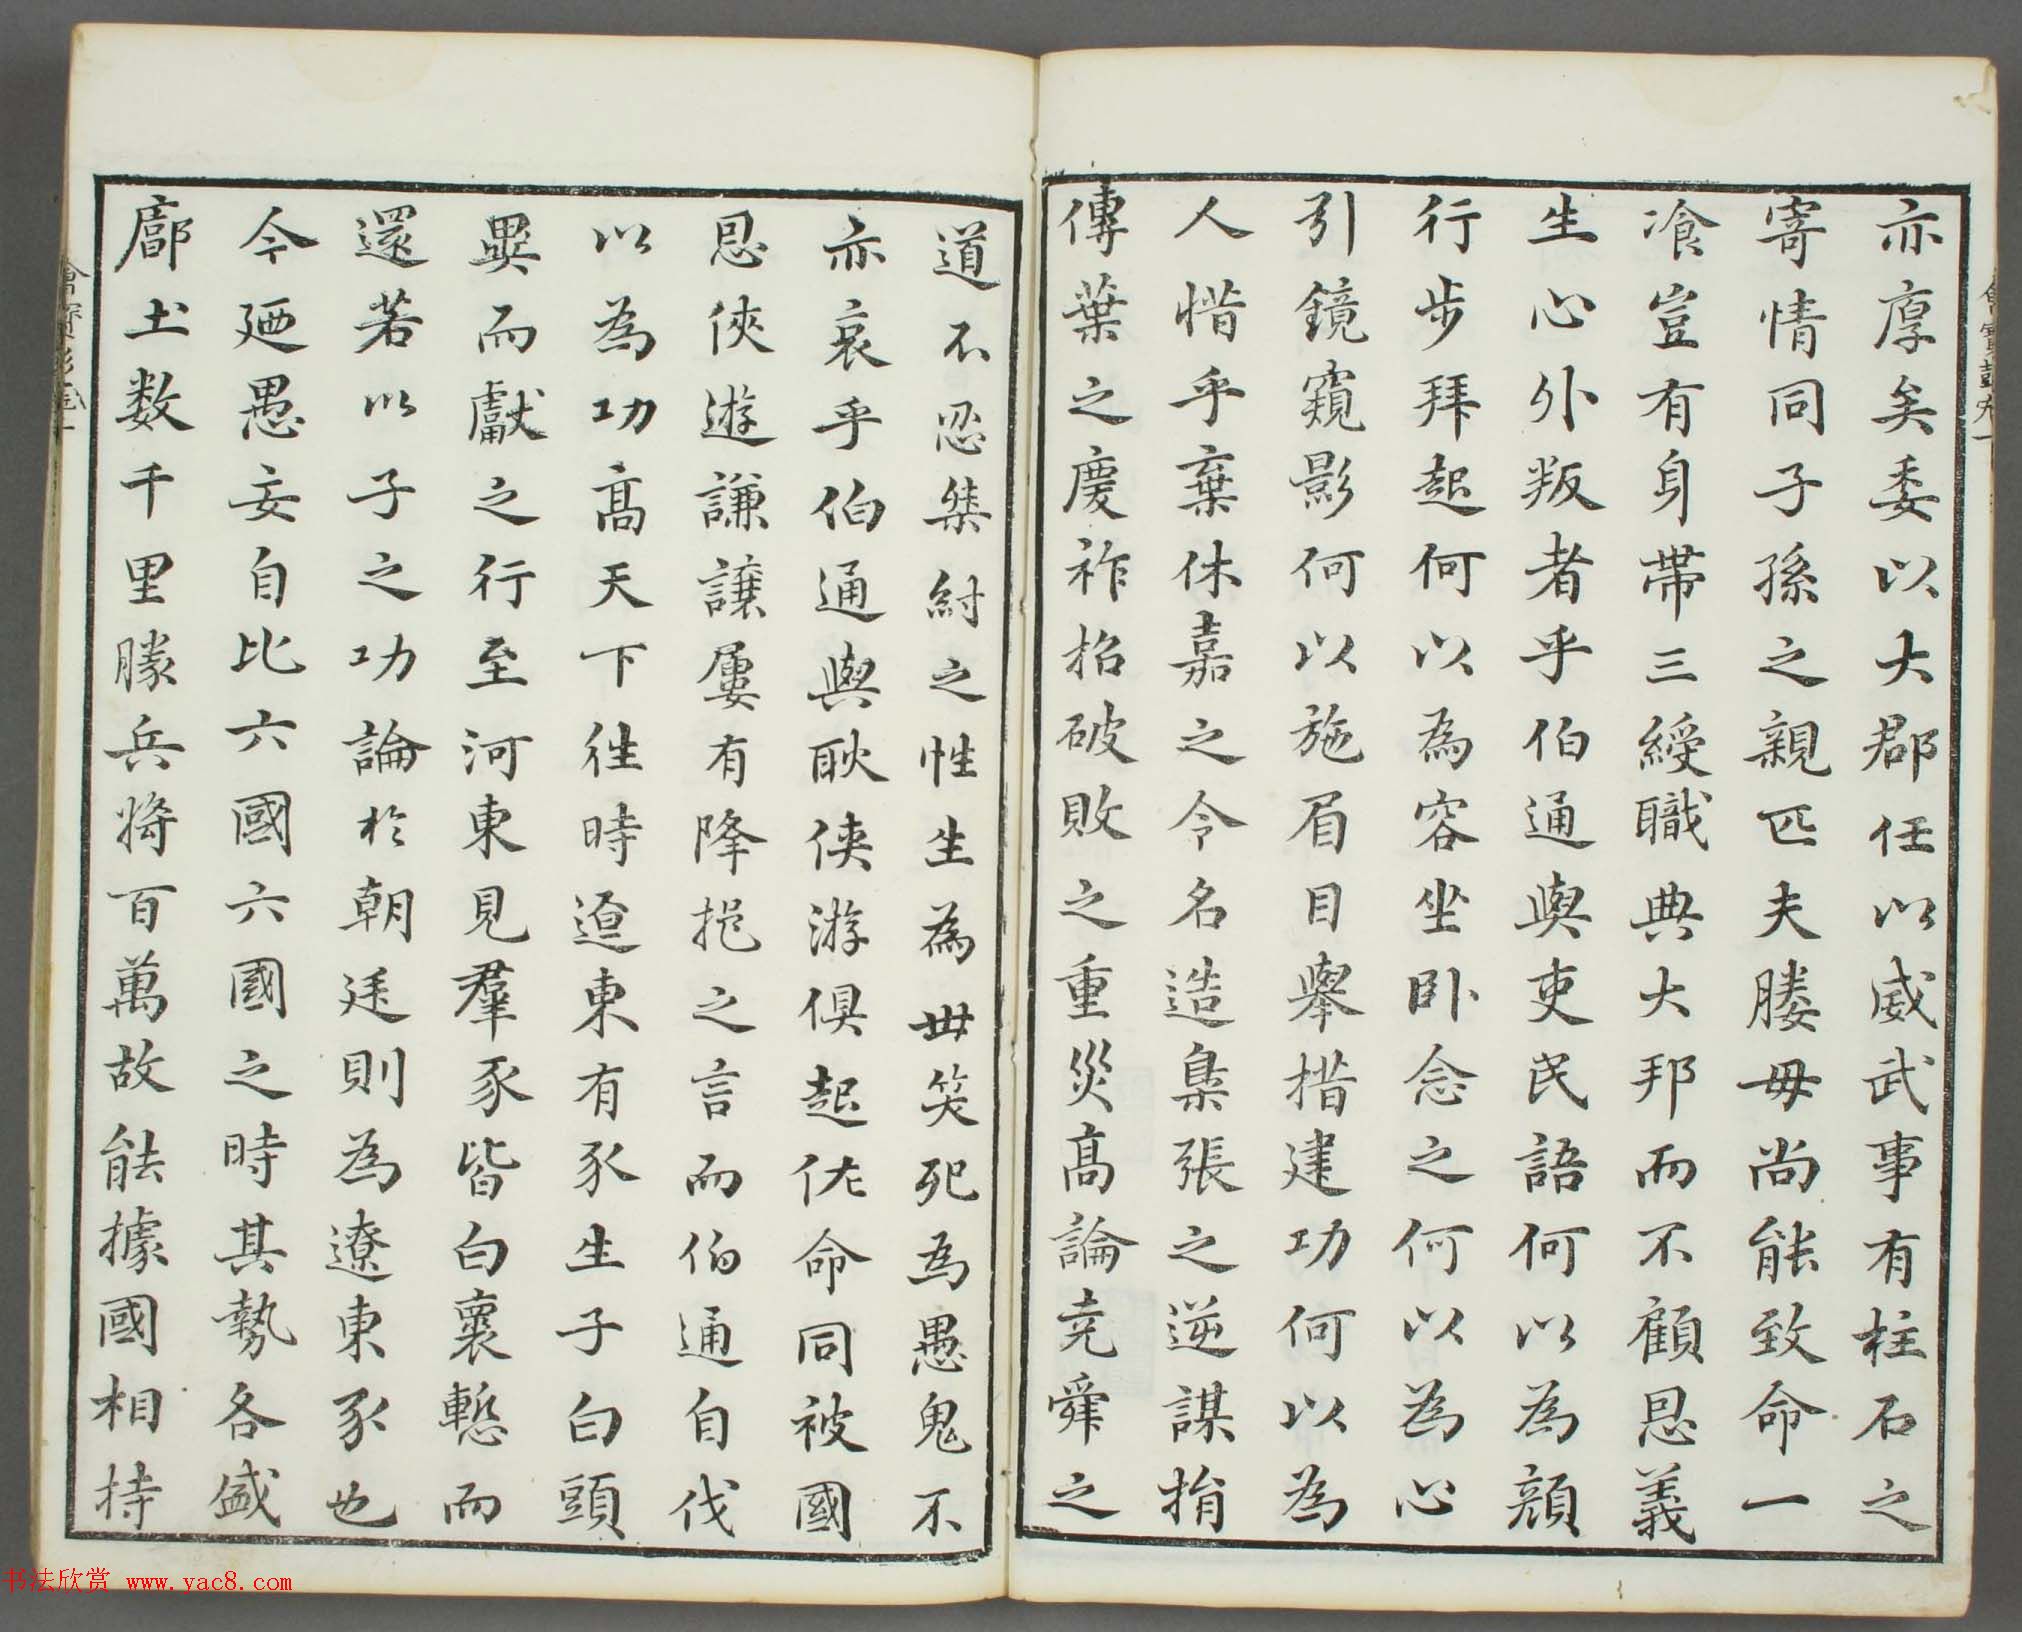 亦厚矣委以大郡任以威武事有柱石之
寄情同子孫之親匹夫媵母尚能致命一
飡豈有身帶三綬職典大邦而不顧恩義
生心外叛者乎伯通與吏民語何以為顏
行步拜起何以為容坐臥念之何以為心
引鏡窺影何以施眉目舉措建功何以為
人惜乎棄休嘉之令名造梟張之逆謀捐
傳葉之慶祚招破敗之重災高論堯舜之
道不忍桀紂之性生為世笑死為愚鬼不
亦哀乎伯通與耿俠游俱起佐命同被國
恩俠遊謙讓屢有降挹之言而伯通自伐
以為功高天下往時遼東有豕生子白頭
異而獻之行至河東見羣豕皆白裹慙而
還若以子之功論於朝廷則為遼東豕也
今廼愚妄自比六國六國之時其勢各盛
廓土数千里勝兵將百萬故能據國相持
书法欣赏 www.yac8.com